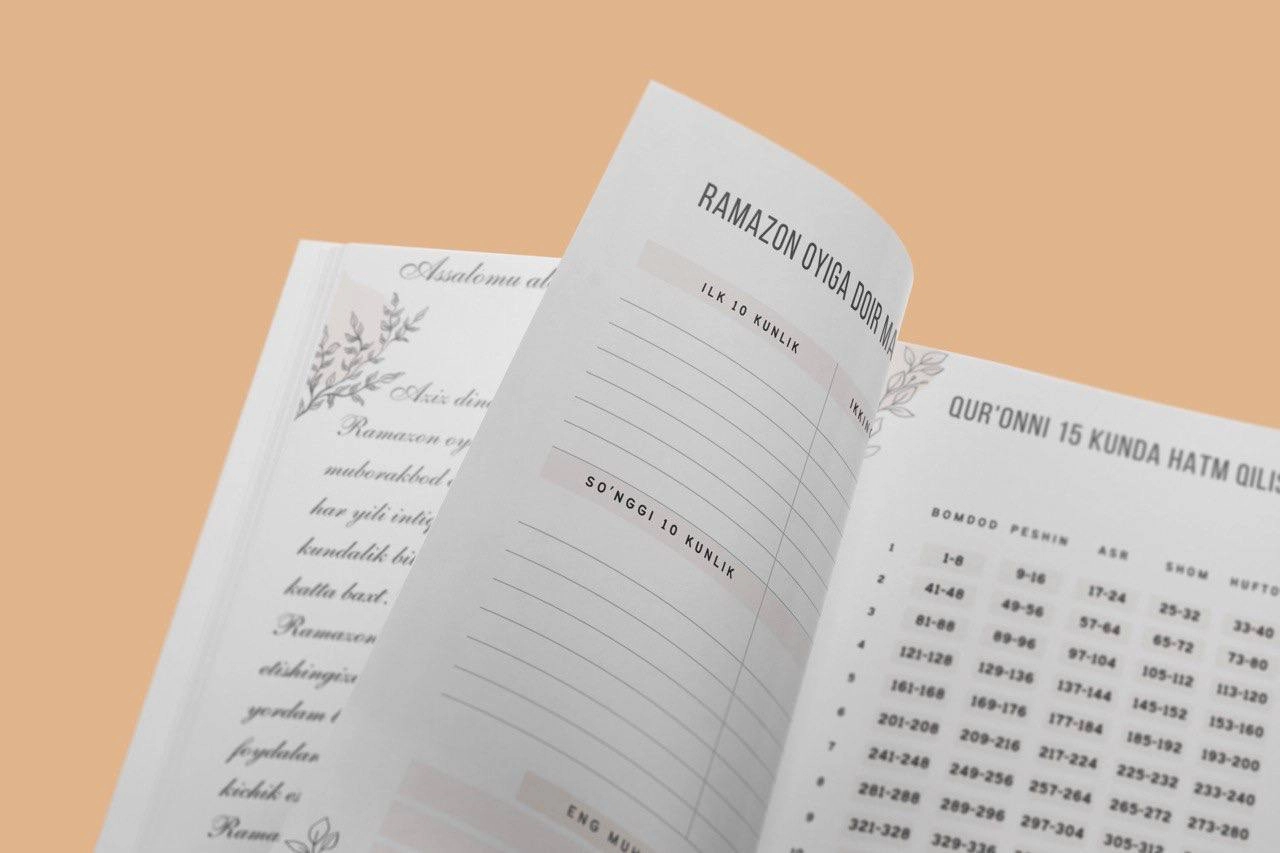 Assalomu al
Aziz dind
Ramazon oy
muborakbod e
har yili intiq
kundalik bi
katta baxt.
Ramazon
etishingiz
yordam t
foydalan
kichik es
Rama
RAMAZON OYIGA DOIR MA
ILK 10 KUNLIK
IKKIN
SO'NGGI 10 KUNLIK
ENG MUH
QUR'ONNI 15 KUNDA HATM QILIS
BOMDOD PESHIN ASR SHOM HUFTO
1 1-8 9-16 17-24 25-32 33-40
2 41-48 49-56 57-64 65-72 73-80
3 81-88 89-96 97-104 105-112 113-120
4 121-128 129-136 137-144 145-152 153-160
5 161-168 169-176 177-184 185-192 193-200
6 201-208 209-216 217-224 225-232 233-240
7 241-248 249-256 257-264 265-272 273-280
8 281-288 289-296 297-304 305-312
9 321-328 329-336